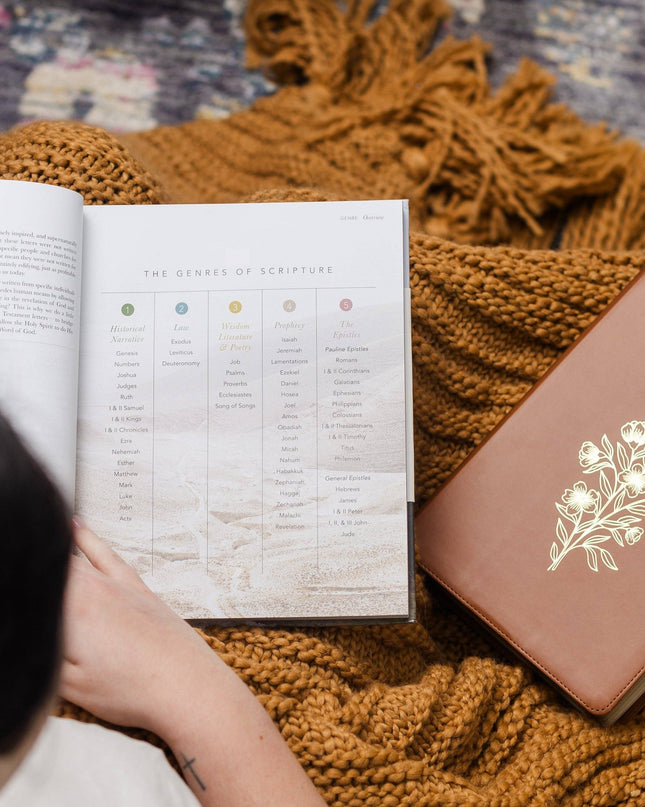 ely inspired, and supernaturally
these letters were not written
specific people and churches for
mean they were not written
entirely edifying, just as profitable
us today.
written from specific individuals
means by allowing
in the revelation of God and
This is why we do a little
Testament letters
follow the Holy Spirit to do His
Word of God.
GENRE Overview
THE GENRES OF SCRIPTURE
1
Historical
Narrative
Genesis
Numbers
Joshua
Judges
Ruth
I & II Samuel
I & II Kings
I & II Chronicles
Ezra
Nehemiah
Esther
Matthew
Mark
Luke
John
Acts
2
Law
Exodus
Leviticus
Deuteronomy
3
Wisdom
Literature
& Poetry
Job
Psalms
Proverbs
Ecclesiastes
Song of Songs
4
Prophecy
Isaiah
Jeremiah
Lamentations
Ezekiel
Daniel
Hosea
Joel
Amos
Obadiah
Jonah
Micah
Nahum
Habakkuk
Zephaniah
Haggai
Zechariah
Malachi
Revelation
5
The
Epistles
Pauline Epistles
Romans
I & II Corinthians
Galatians
Ephesians
Philippians
Colossians
I & II Thessalonians
I & II Timothy
Titus
Philemon
General Epistles
Hebrews
James
I & II Peter
I, II, & III John
Jude